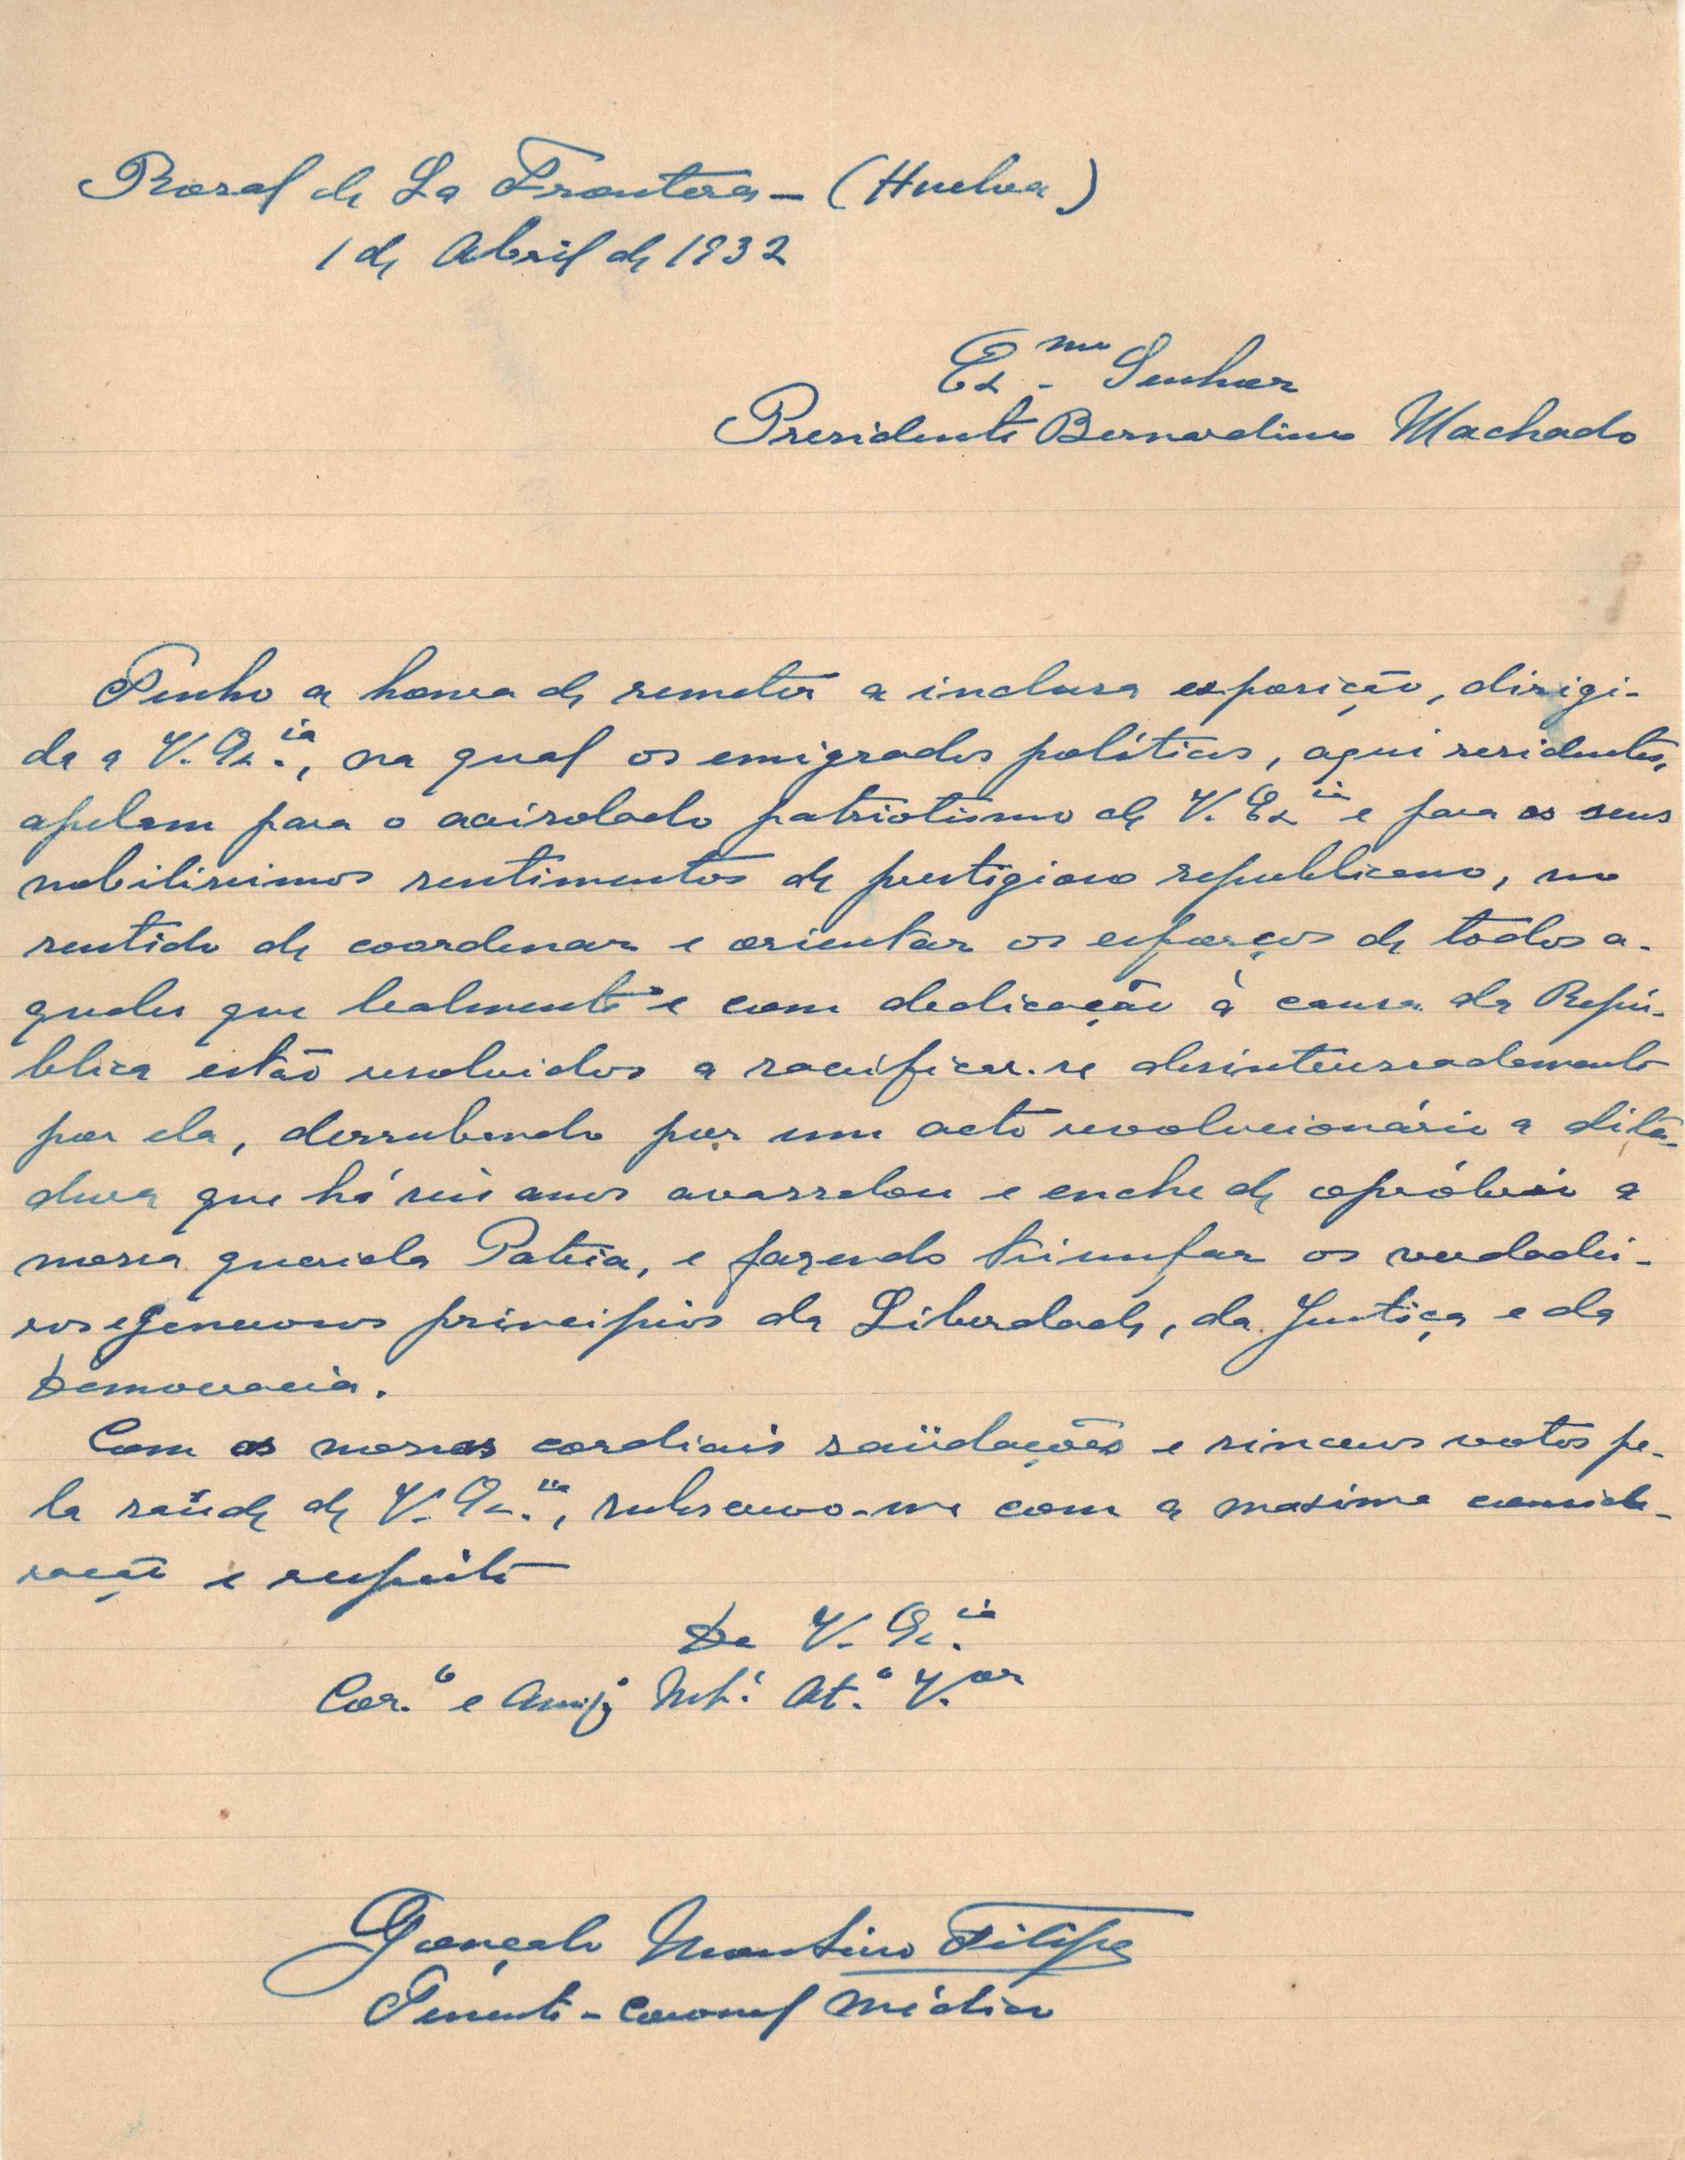 Rosal de La Frontera - (Huelva)
1 de Abril de 1932
Ex.mo Senhor
Presidente Bernardino Machado
Tenho a honra de remeter a inclusa exposição, dirigi-
da a V. Ex.cia, na qual os emigrados políticos, aqui residentes,
apelam para o acrisolado patriotismo de V. Ex.cia e para os seus
nobilissimos sentimentos de prestigioso republicano, no
sentido de coordenar e orientar os esforços de todos a-
queles que lealmente e com dedicação à causa da Repú-
blica estão resolvidos a sacrificar-se desinteressadamente
por ela, derrubando por um acto revolucionário a dita-
dura que há seis anos avassalou e enche de opróbrio a
nossa querida Patria, e fazendo triunfar os verdadei-
ros e generosos principios da Liberdade, da Justiça e da
Democracia.
Com as nossas cordiais saüdações e sinceros votos pe-
la saüde de V. Ex.cia, subscrevo-me com a maxima conside-
ração e respeito
De V. Ex.cia
Cor.o e Amigo Mt.o At.o V.or
Gonçalo Monteiro Filipe
Tenente-Coronel Médico